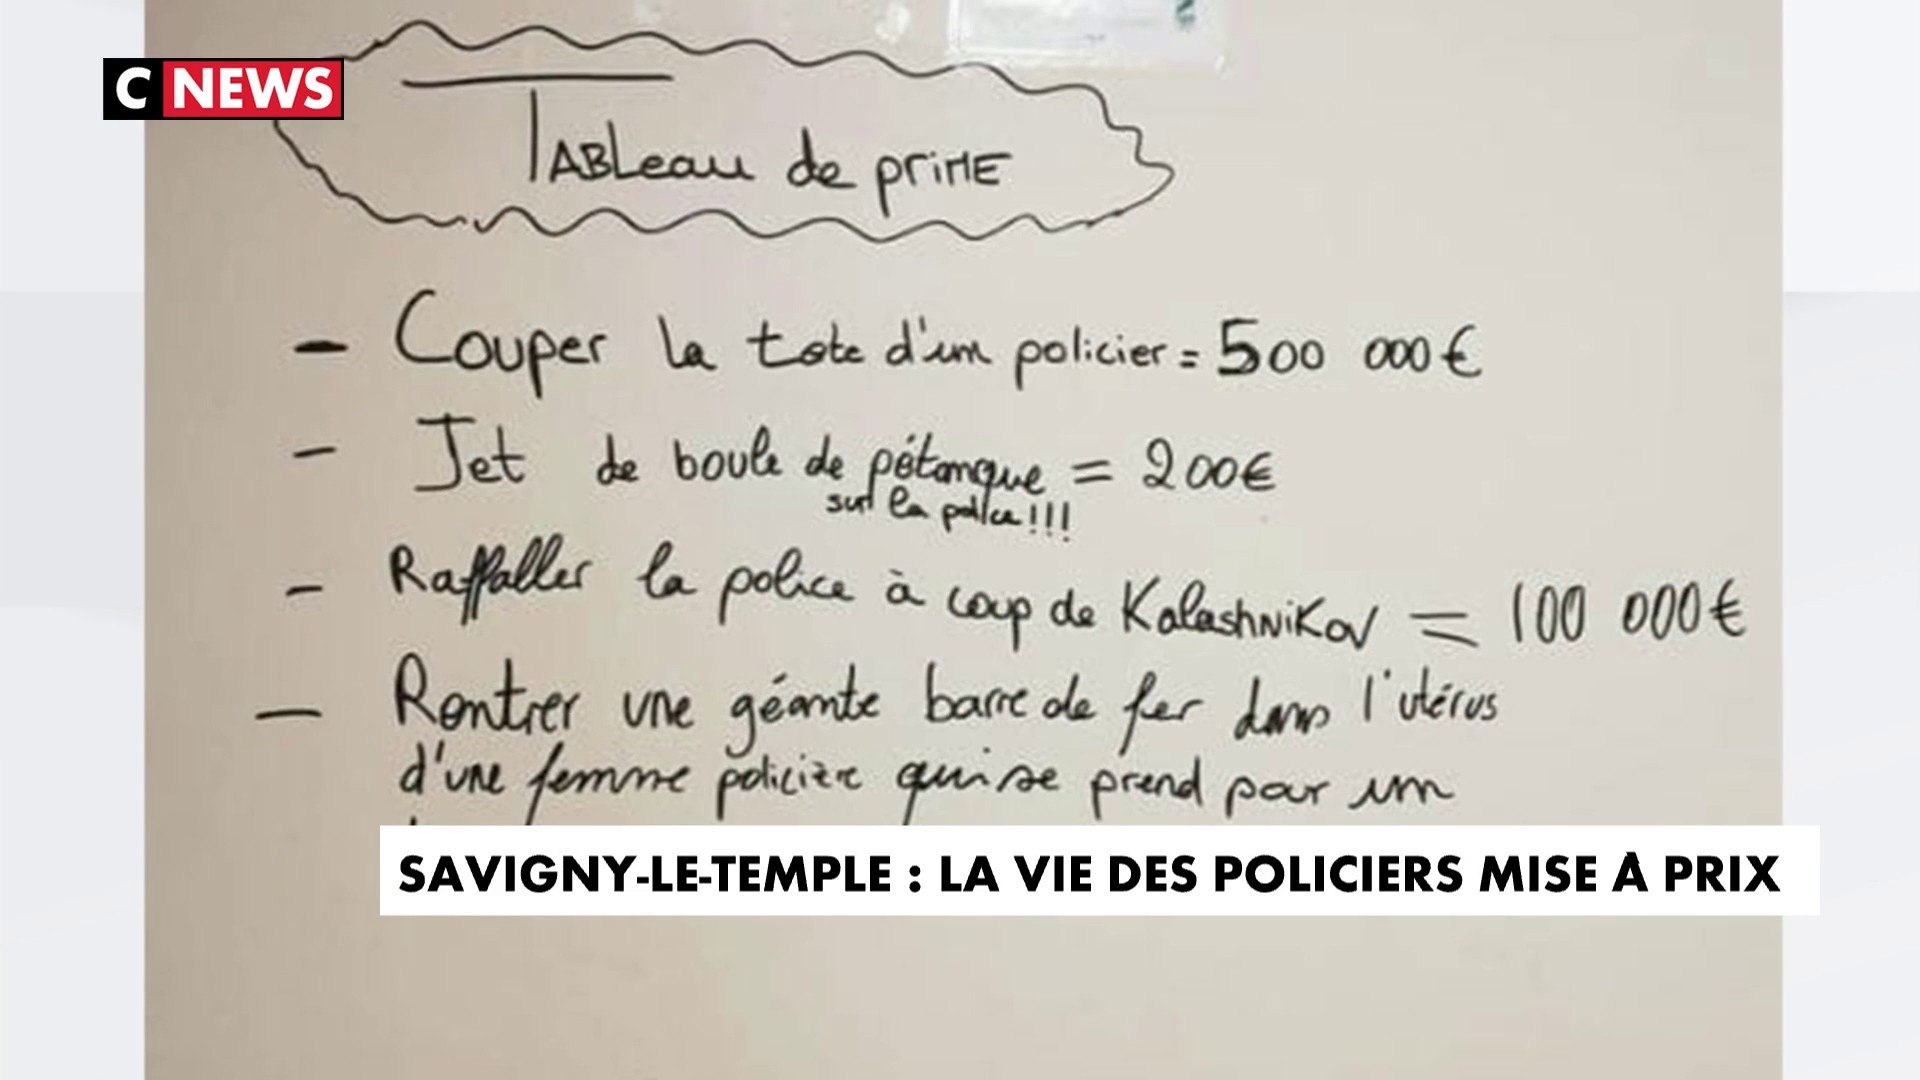 C NEWS
TABLeau de priME
- Couper la tete d'un policier = 500 000€
- Jet de boule de pétanque = 200€
sur la police!!!
- Raffaller la police à coup de KalashniKov = 100 000€
- Rentrer une géante barre de fer dans l'utérus
d'une femme policière qui se prend pour un
SAVIGNY-LE-TEMPLE : LA VIE DES POLICIERS MISE À PRIX